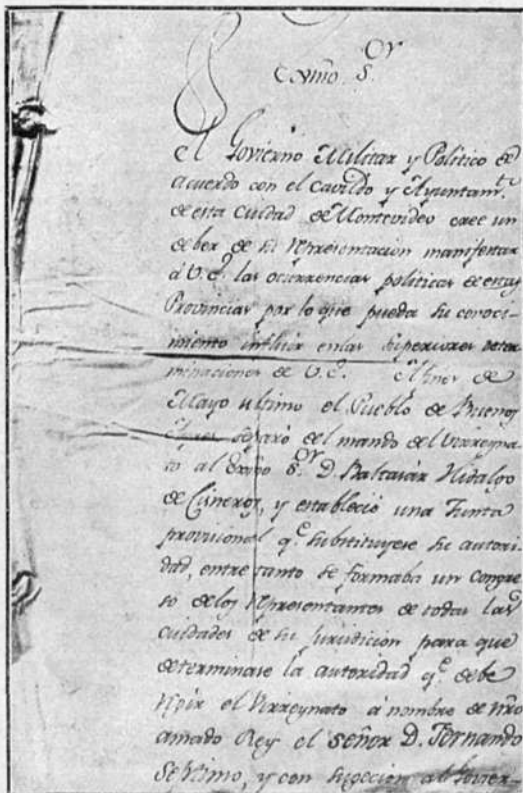 Exmo. Sor
El Govierno Militar y Politico de
acuerdo con el Cavildo y Ayuntamto.
de esta Ciudad de Montevideo cree un
deber de su representacion manifestar
á V.E. las ocurrencias politicas de estas
Provincias por lo que pueda su conoci-
miento influir en las superiores deter-
minaciones de V.E. A fines de
Mayo ultimo el Pueblo de Buenos
Ayres separó del mando del Virreyna-
to al Exmo Sor. D. Baltasar Hidalgo
de Cisneros, y estableció una Junta
provisional qe. substituyese su autori-
dad, entre tanto se formaba un congre-
so de los representantes de todas las
ciudades de su jurisdicion para que
determinase la autoridad qe. debe
regir el Virreynato á nombre de nro
amado Rey el señor D. Fernando
Septimo, y con sugecion al Govier-